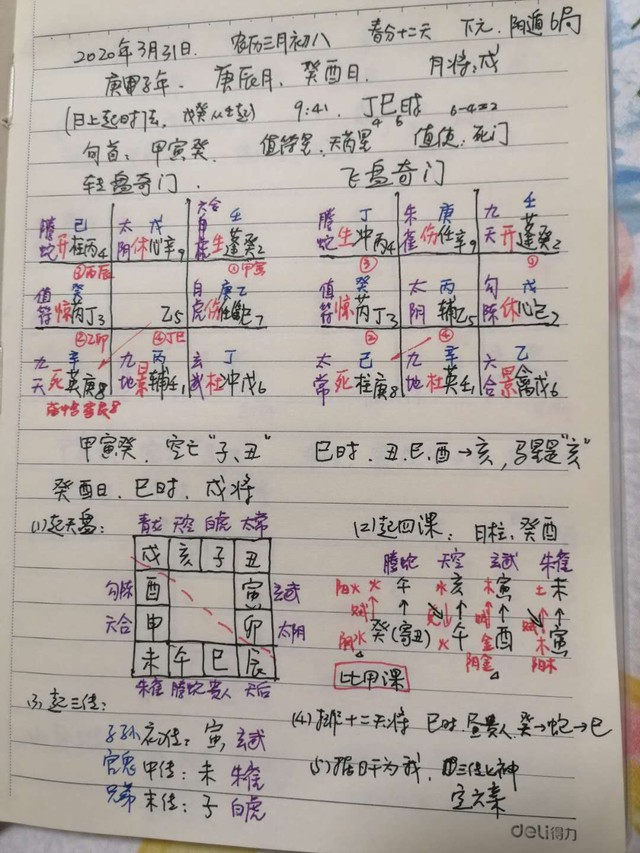 2020年3月31日. 农历三月初八 春分十二天 下元. 阴遁6局
庚甲子年. 庚辰月. 癸酉日. 月将:戌
(日上起时法, 戊癸从壬起) 9:41. 丁巳时 6-4=2
4 6
旬首: 甲寅癸. 值符星. 天芮星 值使:死门
转盘奇门. 飞盘奇门
螣蛇 己 开柱丙4 太阴 戊 休心辛9 六合 壬 生蓬癸2
②丙辰 ①甲寅
值符 癸 惊芮丁3 乙5 白虎 庚乙 伤任己7
③乙卯 ④丁巳
九天 辛 死英庚8 九地 丙 景辅壬1 玄武 丁 杜冲戊6
螣蛇 丁 生冲丙4 朱雀 庚 伤任辛9 九天 壬 开蓬癸2
③ ①
值符 癸 惊芮丁3 太阴 丙 辅乙5 勾陈 休心己2
② ④
太常 己 死柱庚8 九地 辛 杜英壬1 六合 乙 景禽戊6
甲寅癸. 空亡"子、丑" 巳时. 丑.巳.酉→亥, 马星是"亥"
癸酉日. 巳时. 戌将
(1)起天盘: 青龙 天空 白虎 太常
戌 亥 子 丑
勾陈 酉 寅 玄武
六合 申 卯 太阴
未 午 巳 辰
朱雀 螣蛇 贵人 天后
(2)起四课: 日柱, 癸酉
螣蛇 天空 玄武 朱雀
阳火 火 午 水 亥 木 寅 土 未
阴水 癸(寄丑) 火 午 金 酉 木 寅
阴金 阳木
比用课
(3)起三传:
子孙 初传: 寅, 玄武
官鬼 中传: 未 朱雀
兄弟 末传: 子 白虎
(4)排十二天将 巳时. 昼贵人. 癸→蛇→巳
(5)据日干为我, 三传上神
定六亲
deli得力